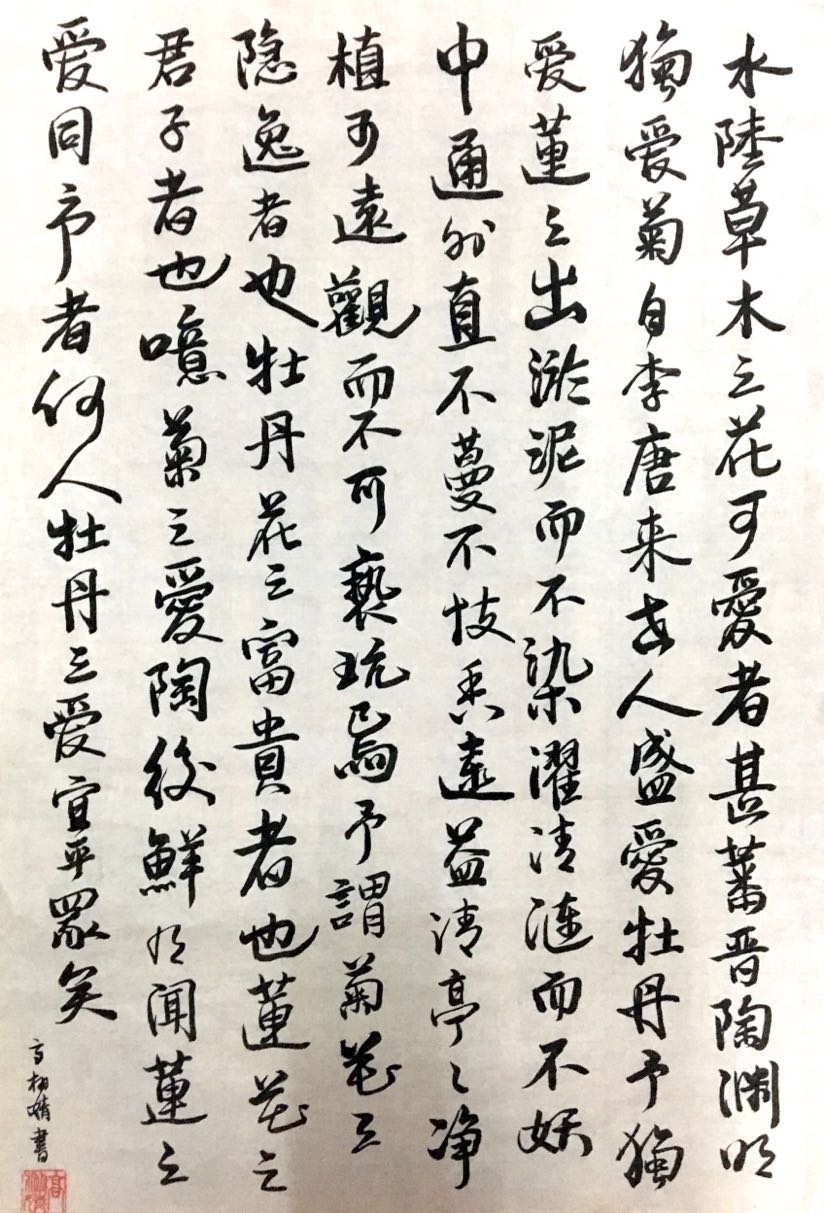 水陸草木之花可愛者甚蕃晋陶渊明
獨爱菊自李唐来世人盛愛牡丹予獨
爱蓮之出淤泥而不染濯清涟而不妖
中通外直不蔓不枝香遠益清亭々净
植可遠觀而不可亵玩焉予謂菊花之
隐逸者也牡丹花之富貴者也蓮花之
君子者也噫菊之愛陶後鮮有闻蓮之
爱同予者何人牡丹之爱宜乎眾矣
高栩婧書